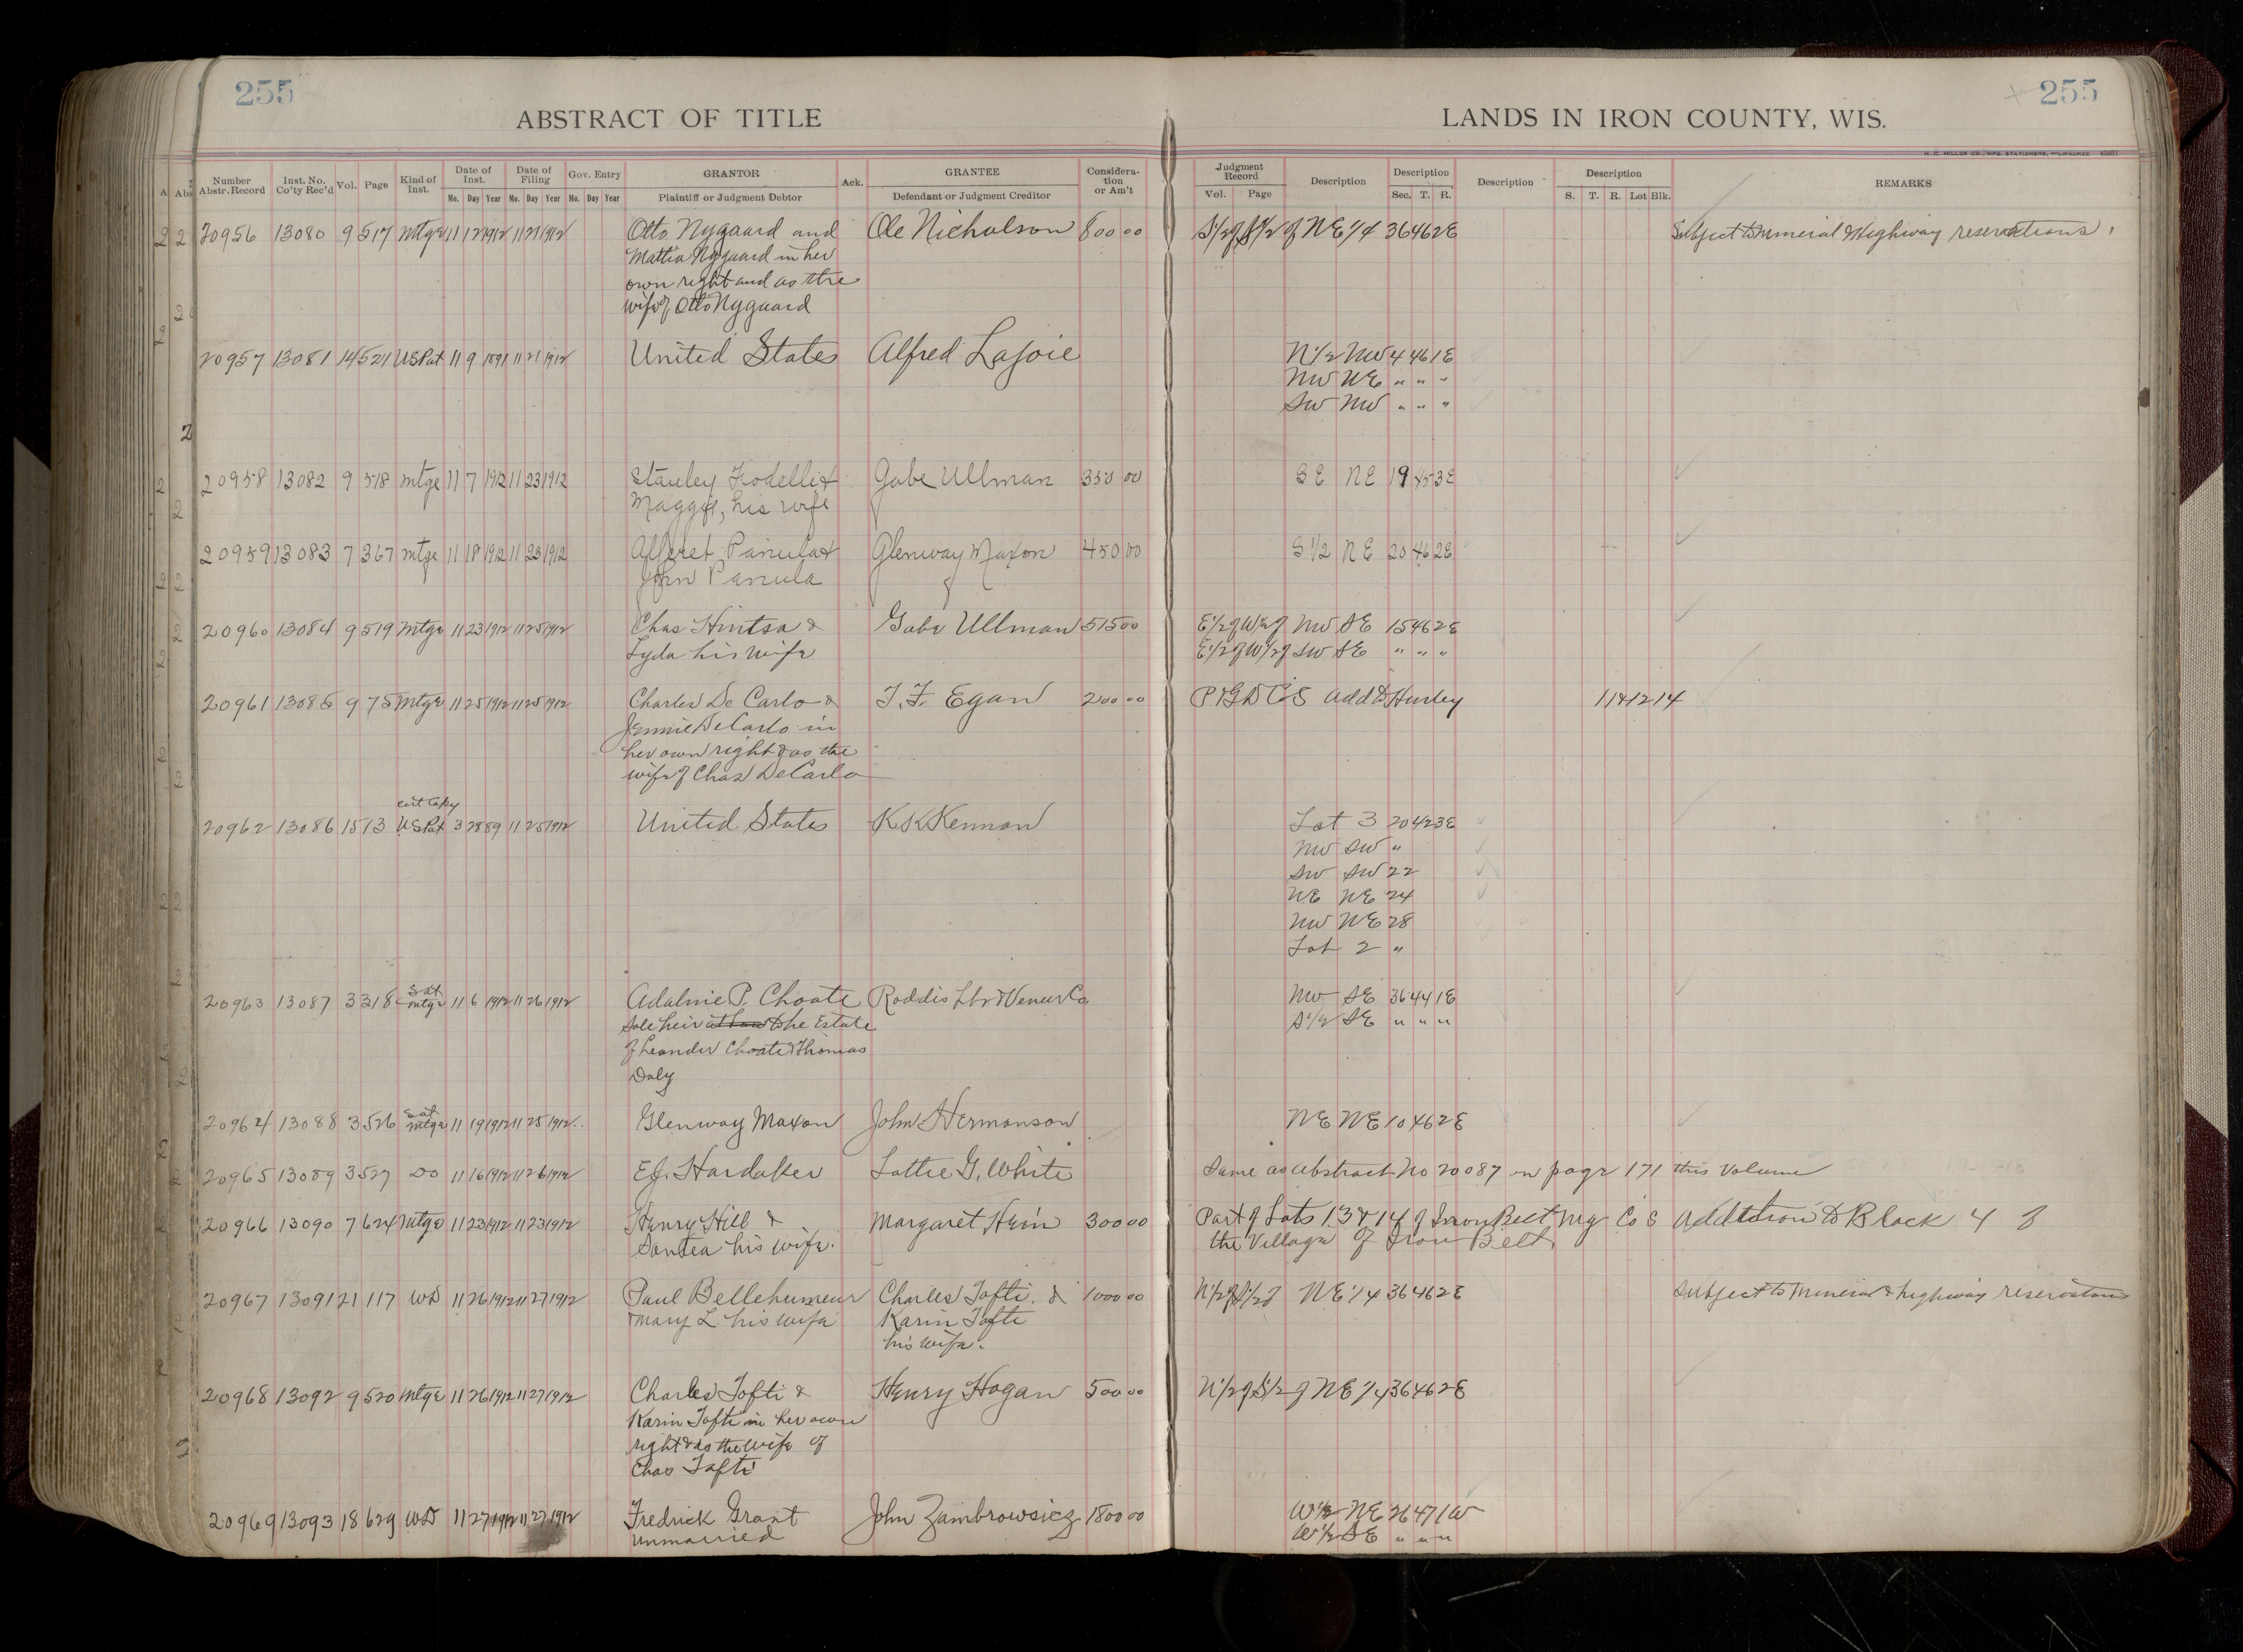 255
255
ABSTRACT OF TITLE
LANDS IN IRON COUNTY, WIS.
H. C. MILLER CO., MFG. STATIONERS, MILWAUKEE
Number Abstr. Record Inst. No. Co'ty Rec'd Vol. Page Kind of Inst. Date of Inst. Mo. Day Year Date of Filing Mo. Day Year Gov. Entry Mo. Day Year GRANTOR Plaintiff or Judgment Debtor Ack. GRANTEE Defendant or Judgment Creditor Considera-tion or Am't Judgment Record Vol. Page Description Description Sec. T. R. Description Description S. T. R. Lot Blk. REMARKS
20956 13080 9 517 Mtge 11 12 1912 11 21 1912 Otto Nygaard and Ole Nicholson 800 00 S1/2 of S1/2 of NE 1/4 36 46 2E Subject to Mineral & Highway reservations.
Mattia Nygaard in her
own right and as the
wife of Otto Nygaard
20957 13081 14 521 US Pat 11 9 1891 11 21 1912 United States Alfred LaJoie N1/2 NW 4 46 1E
NW NE " " "
SW NW " " "
20958 13082 9 518 mtge 11 7 1912 11 23 1912 Stanley Fodelli & Gabe Ullman 350 00 SE NE 19 45 3E
Maggie, his wife
20959 13083 7 367 mtge 11 18 1912 11 23 1912 Panula & Glenway Maxon 450 00 S 1/2 NE 20 46 2E
John Panula
20960 13084 9 519 Mtge 11 23 1912 11 25 1912 Chas Hintsa & Gabe Ullman 515 00 E1/2 of W1/2 of NW SE 15 46 2E
Lyda his wife E1/2 of W1/2 of SW SE " " "
20961 13085 9 75 Mtge 11 25 1912 11 25 1912 Charles De Carlo & T. F. Egan 200 00 Add to Hurley 11&12 14
Jennie DeCarlo in
her own right & as the
wife of Chas DeCarlo
cert copy
20962 13086 15 13 US Pat 3 28 89 11 25 1912 United States K K Kennan Lot 3 20 42 3E
NW SW "
SW SW 22
NE NE 24
NW NE 28
Lot 2 "
20963 13087 3 318 Sat mtge 11 6 1912 11 26 1912 Adalnie P. Choate Roddis Lbr & Veneer Co NW SE 36 44 1E
Sole heir at law to the Estate S1/2 SE " " "
of Leander Choate & Thomas
Daly
20964 13088 3 526 Sat mtge 11 19 1912 11 25 1912 Glenway Maxon John Hermanson NE NE 10 46 2E
20965 13089 3 527 Do 11 16 1912 11 26 1912 E.J. Hardaker Lottie G. White Same as abstract No 20087 on page 171 this Volume
20966 13090 7 624 Mtge 11 23 1912 11 23 1912 Henry Hill & Margaret Hein 300 00 Part of Lots 13 & 14 of Iron Belt Mg Co S Addition to Block 4 of
Santea his wife. the Village of Iron Belt.
20967 13091 21 117 WD 11 26 1912 11 27 1912 Paul Bellehumeur Charles Tofti & 1000 00 N1/2 of S1/2 of NE 1/4 36 46 2E Subject to Mineral & highway reservations
Mary L his wife Karin Tofti
his wife.
20968 13092 9 520 Mtge 11 26 1912 11 27 1912 Charles Tofti & Henry Hogan 500 00 N1/2 of S1/2 of NE 1/4 36 46 2E
Karin Tofti in her own
right & as the wife of
Chas Tofti
20969 13093 18 629 WD 11 27 1912 11 27 1912 Fredrick Grant John Zambrowsicz 1800 00 W1/2 NE 26 47 1W
Unmarried W1/2 SE " " "